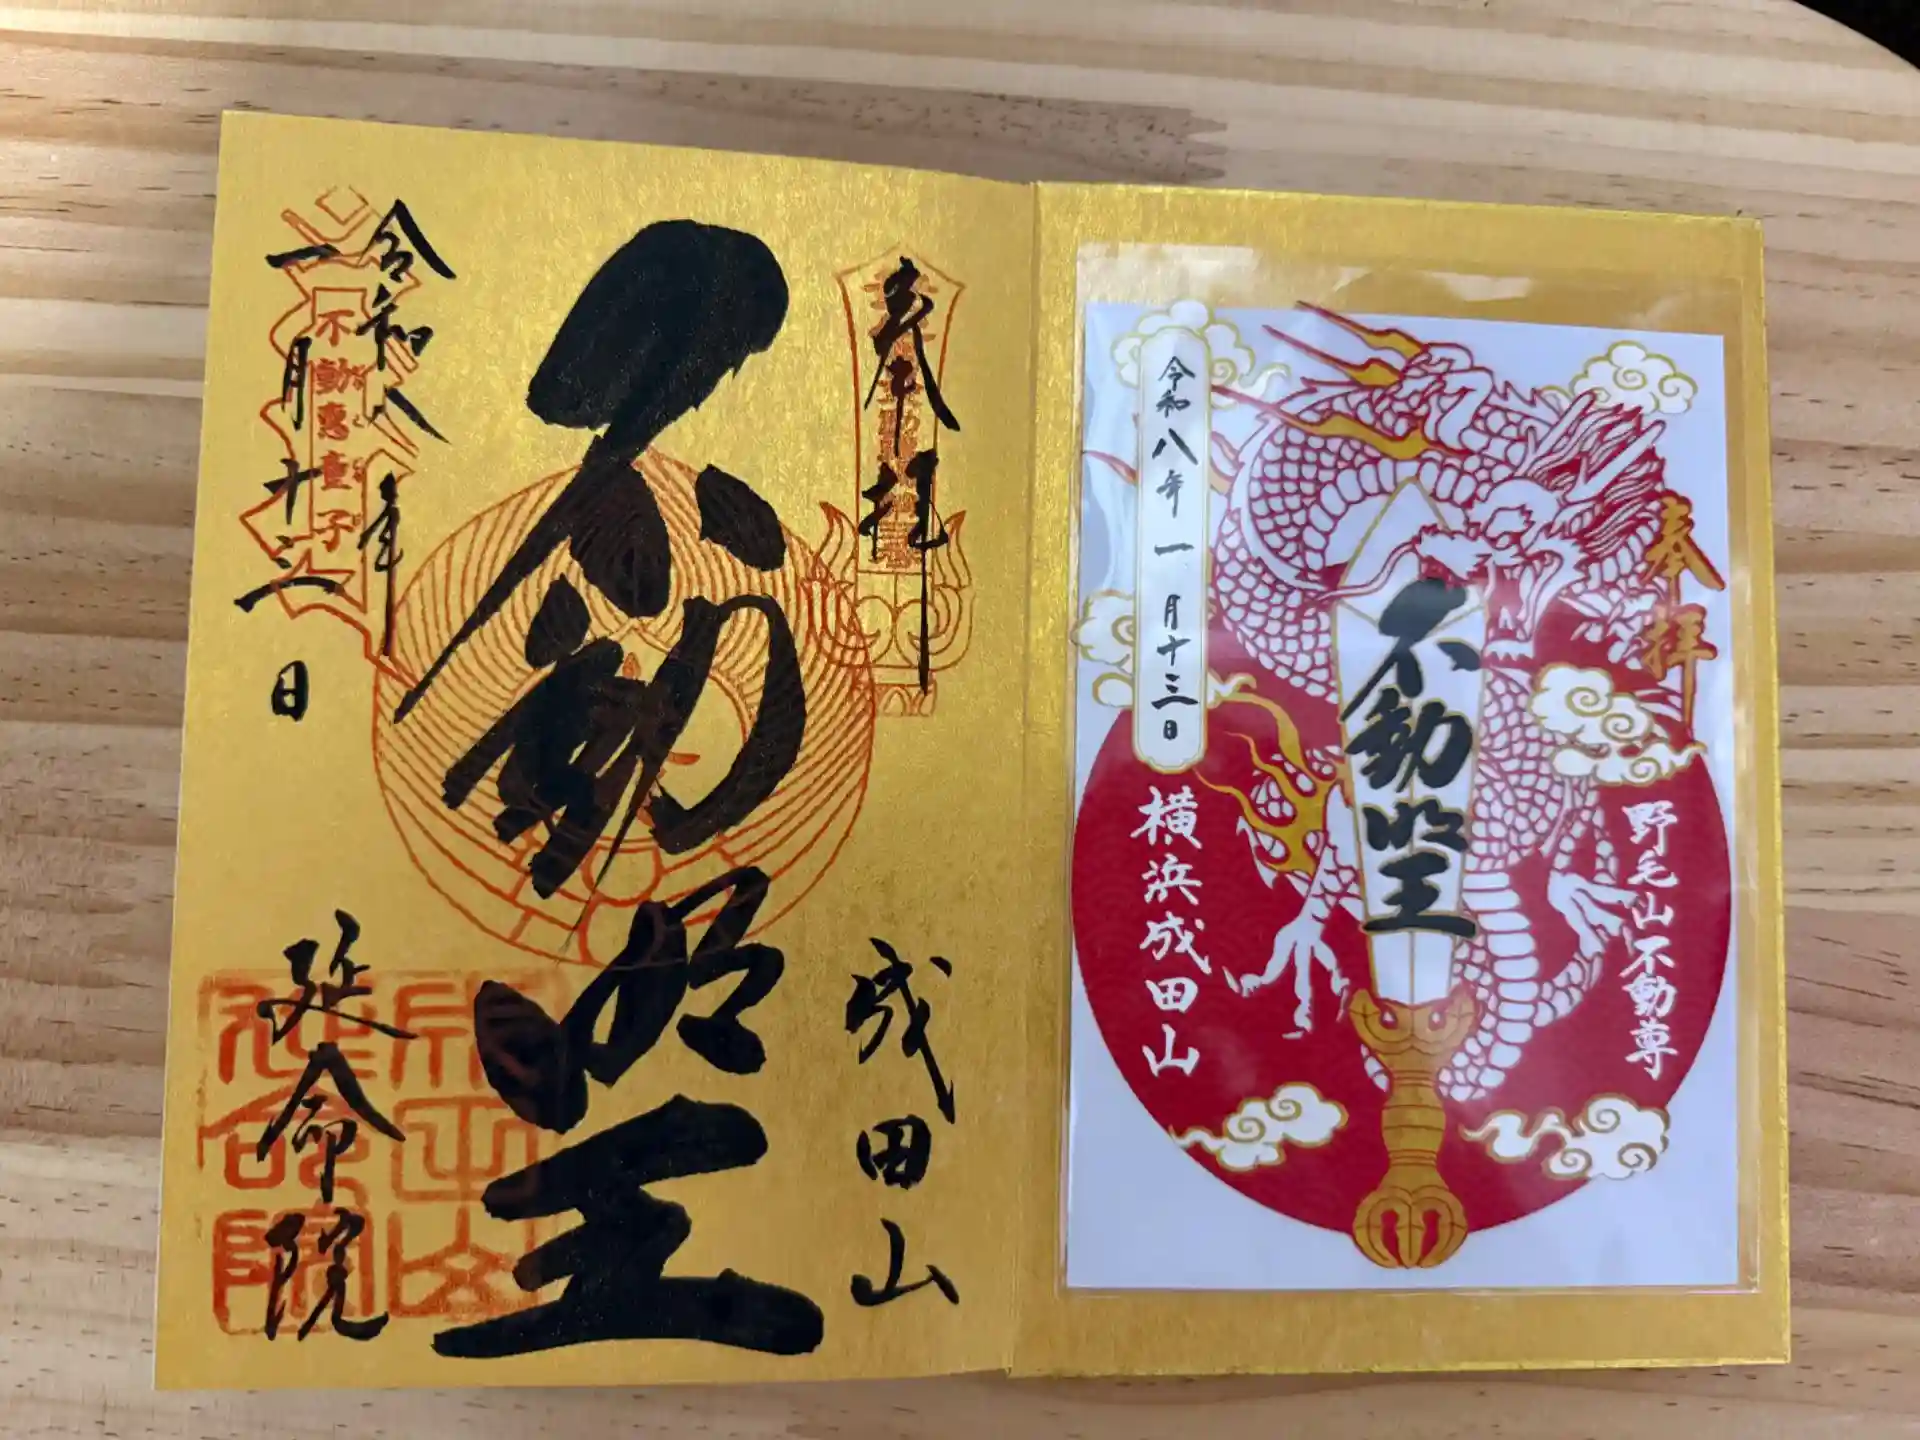 奉拝
成田山
不動明王
令和八年
一月十三日
延命院
不動恵童子
奉拝
野毛山不動尊
不動明王
令和八年一月十三日
横浜成田山